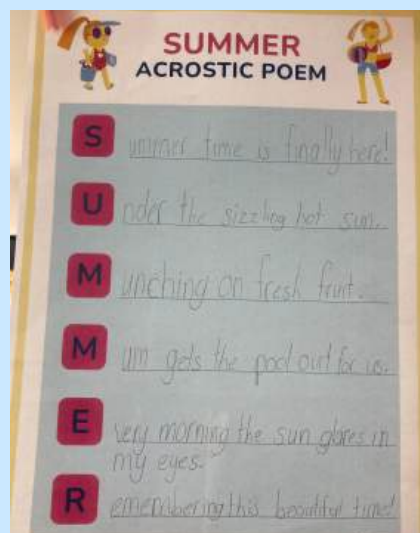 SUMMER
ACROSTIC POEM
Summer time is finally here!
Under the sizzling hot sun.
Munching on fresh fruit.
Mum gets the pool out for us.
Every morning the sun glares in
my eyes.
Remembering this beautiful time!